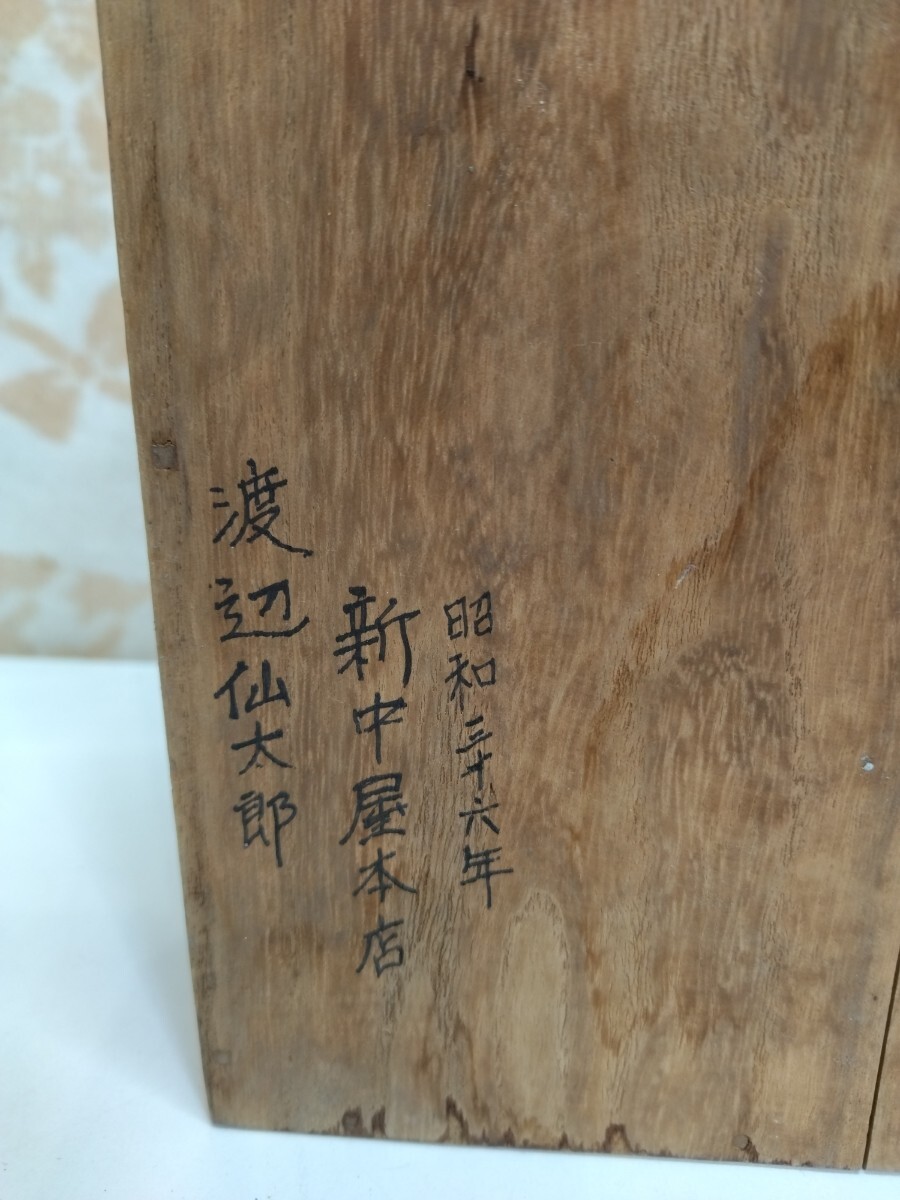 昭和三十六年
新中屋本店
渡辺仙太郎